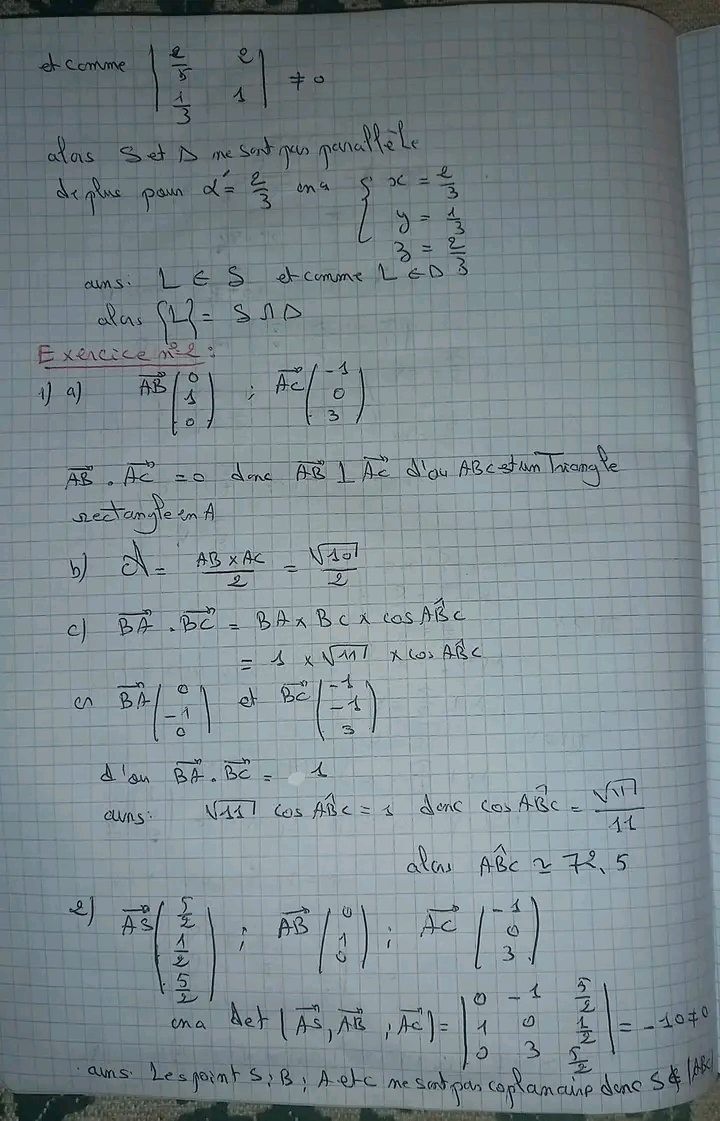 et comme | 2/5 2 ; 1/3 1 | ≠ 0
alors S et D ne sont pas parallèle
de plus pour α' = 2/3 on a { x = 2/3
y = 1/3
z = 2/3
ainsi L ∈ S et comme L ∈ D
alors {L} = S ∩ D
Exercice n°2 :
1) a) AB→ (0 ; 1 ; 0) ; AC→ (-1 ; 0 ; 3)
AB→ . AC→ = 0 donc AB→ ⊥ AC→ d'où ABC est un Triangle
rectangle en A
b) A = AB × AC / 2 = √10 / 2
c) BA→ . BC→ = BA × BC × cos AB̂C
= 1 × √11 × cos AB̂C
or BA→ (0 ; -1 ; 0) et BC→ (-1 ; -1 ; 3)
d'où BA→ . BC→ = 1
ainsi √11 cos AB̂C = 1 donc cos AB̂C = √11 / 11
alors AB̂C ≃ 72,5
2) AS→ (5/2 ; 1/2 ; 5/2) ; AB→ (0 ; 1 ; 0) ; AC→ (-1 ; 0 ; 3)
on a det (AS→, AB→, AC→) = | 0 -1 5/2 ; 1 0 1/2 ; 0 3 5/2 | = -10 ≠ 0
ainsi Les point S ; B ; A et C ne sont pas coplanaire donc S ∉ (ABC